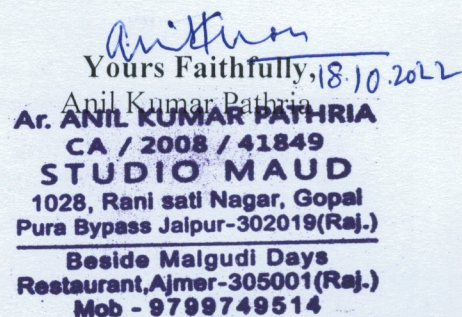 Yours Faithfully, 18.10.2022
Anil Kumar Pathria
Ar. ANIL KUMAR PATHRIA
CA / 2008 / 41849
STUDIO MAUD
1028, Rani sati Nagar, Gopal
Pura Bypass Jaipur-302019(Raj.)
Beside Malgudi Days
Restaurant,Ajmer-305001(Raj.)
Mob - 9799749514